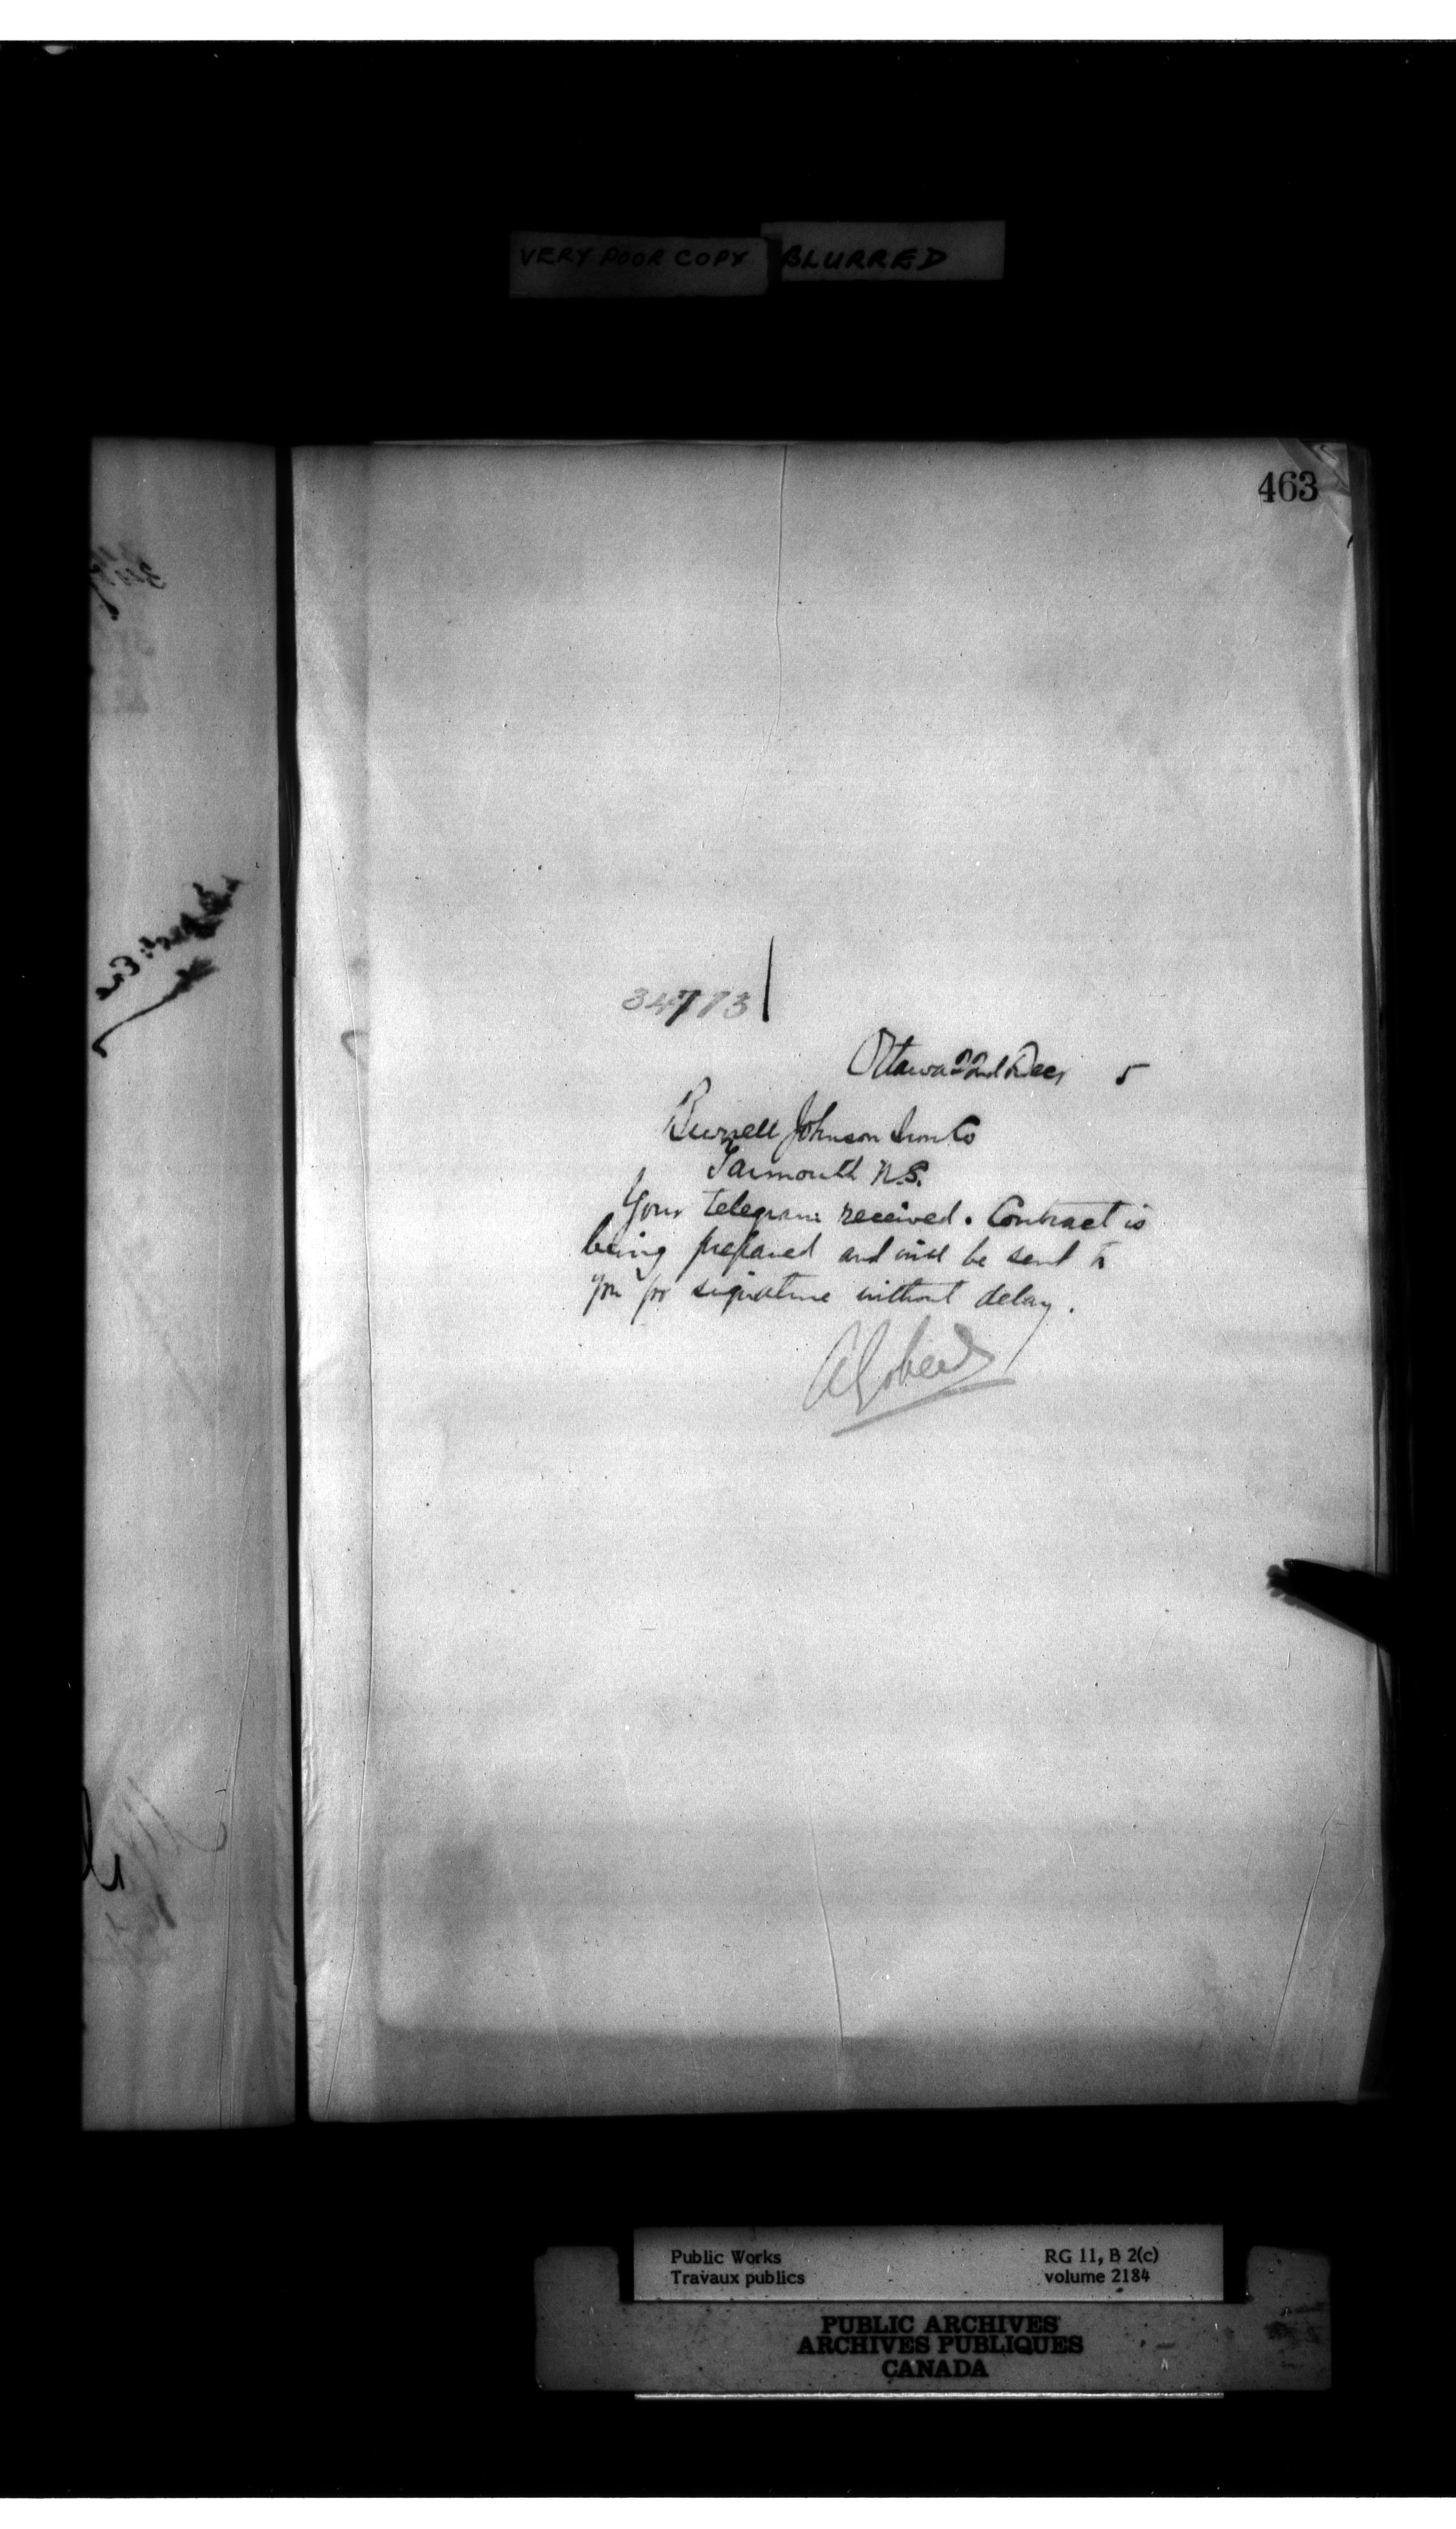 VERY POOR COPY BLURRED
463
34773
Ottawa 22nd Decr 5
Burrell Johnson Iron Co
Yarmouth N.S.
Your telegram received. Contract is
being prepared and will be sent to
you for signature without delay.
AGobeil
Public Works RG 11, B 2(c)
Travaux publics volume 2184
PUBLIC ARCHIVES
ARCHIVES PUBLIQUES
CANADA